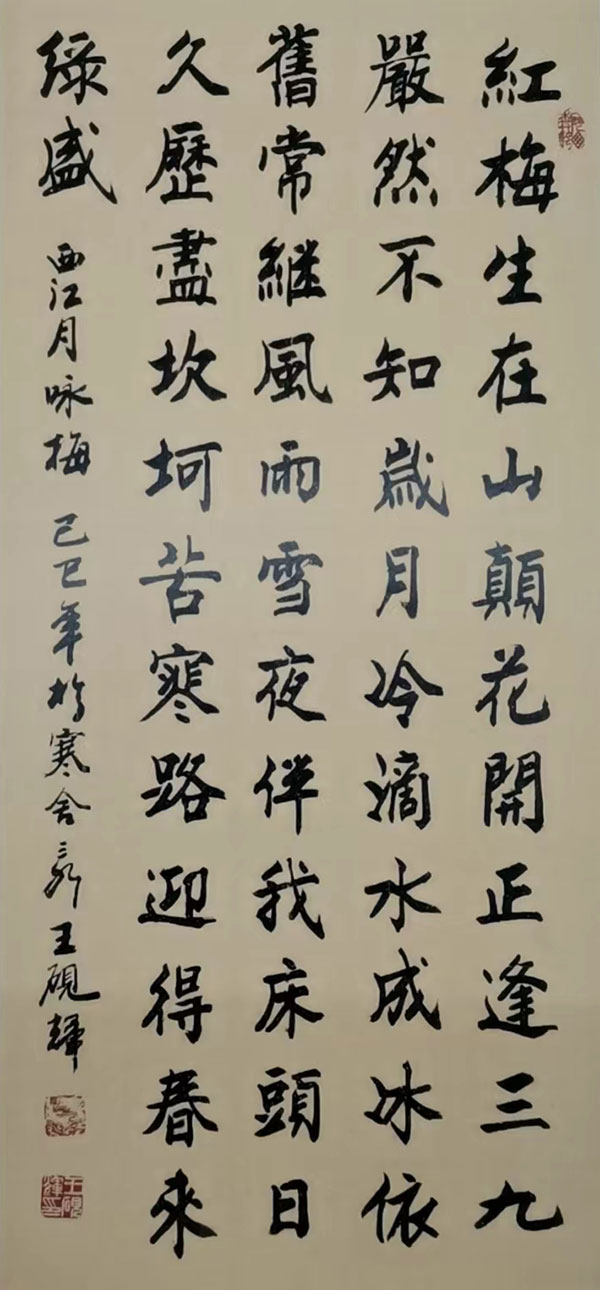 紅梅生在山顛花開正逢三九
嚴然不知歲月冷滴水成冰依
舊常繼風雨雪夜伴我床頭日
久歷盡坎坷苦寒路迎得春來
綠盛 西江月咏梅 己巳年於寒舍 王硯輝
王硯輝印